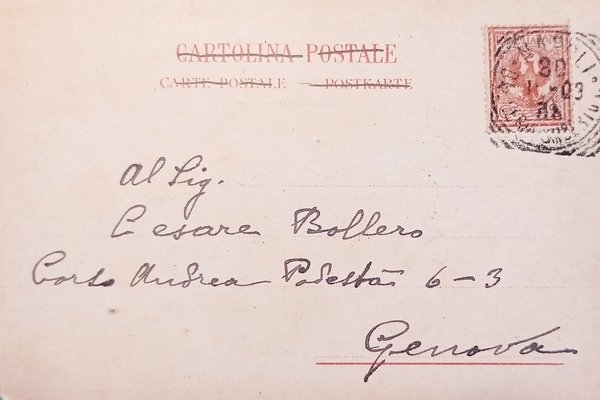 CARTOLINA POSTALE
CARTE POSTALE POSTKARTE
Al Sig.
Cesare Bollero
Corso Andrea Podestà 6-3
Genova